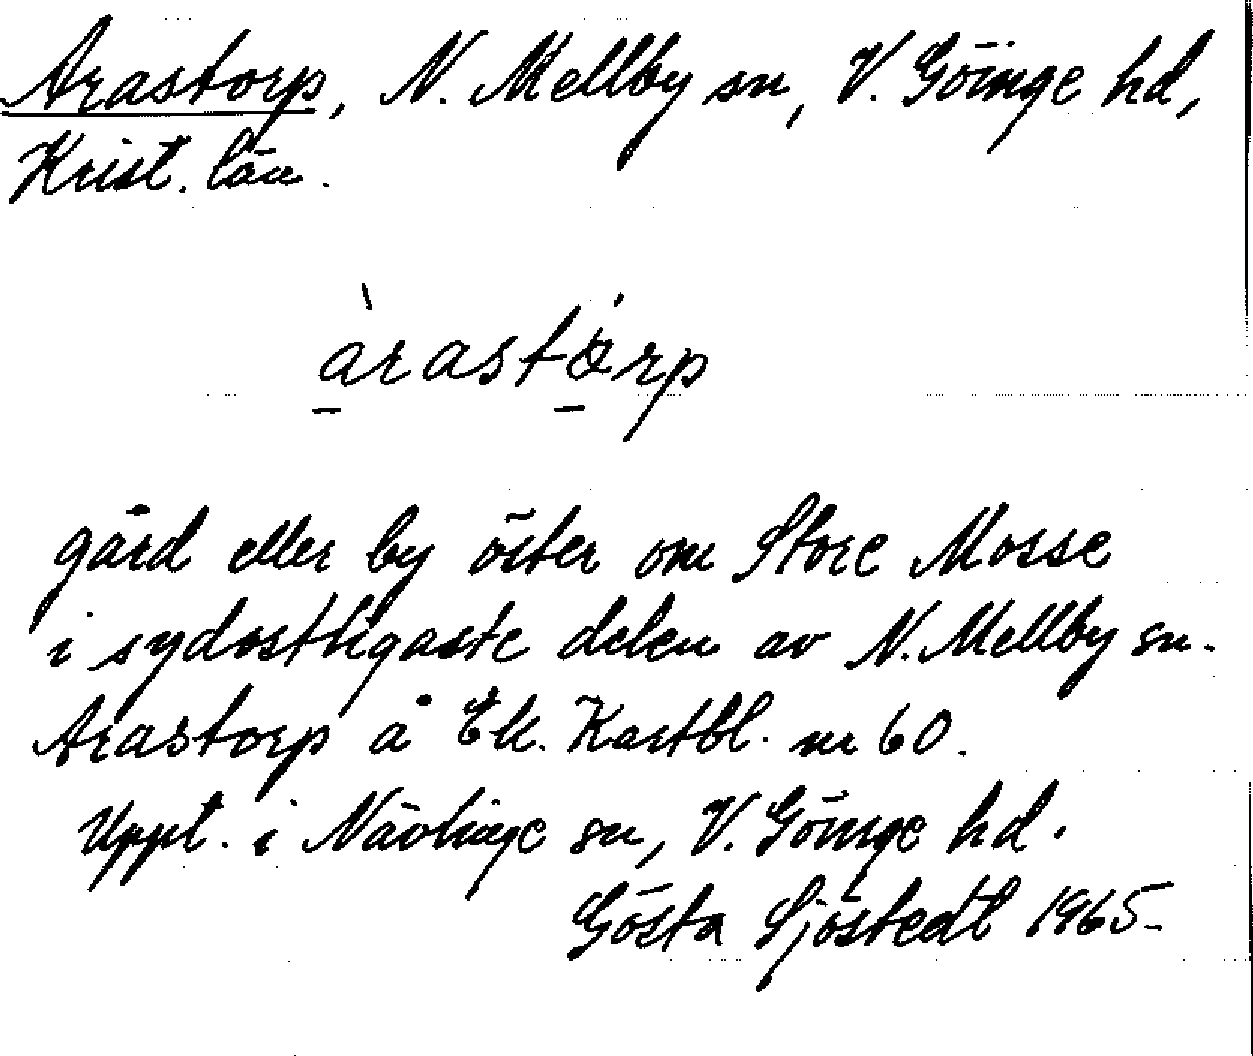 Arastorp, N. Mellby sn, V. Göinge hd,
Krist. län.
àrastårp
gård eller by öster om Store Mosse
i sydostligaste delen av N. Mellby sn.
Arastorp å Ek. Kartbl. nr 60.
Uppt. i Nävlinge sn, V. Göinge hd.
Gösta Sjöstedt 1965.